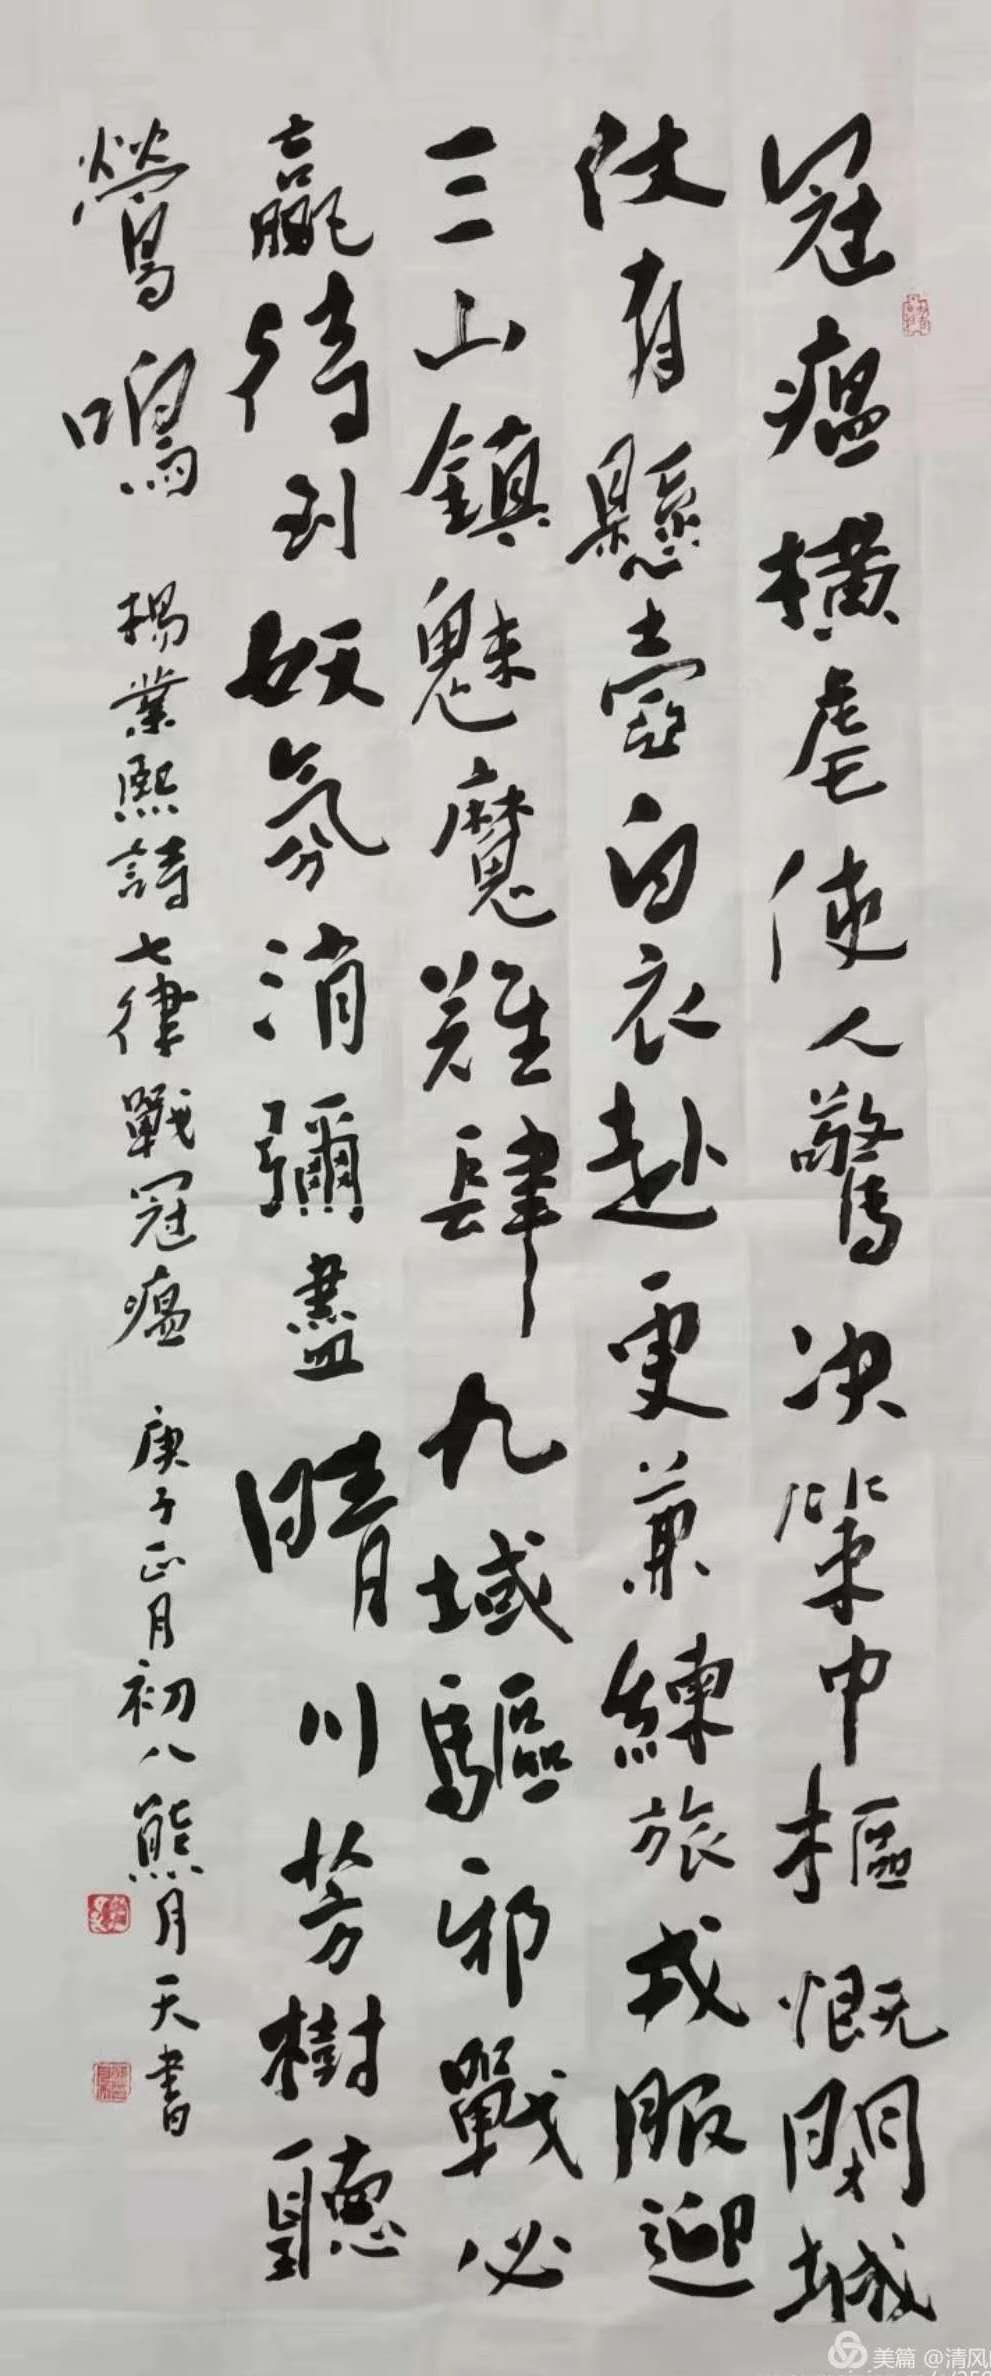 冠瘟橫虐使人驚決策中樞慨閉城
仗有懸壺白衣赴更兼練旅戎服迎
三山鎮魅魔難肆九域驅邪戰必
贏待到妖氛消彌盡晴川芳樹聽
鶯鳴 楊業熙詩七律戰冠瘟 庚子正月初八熊月天書
美篇 @清风